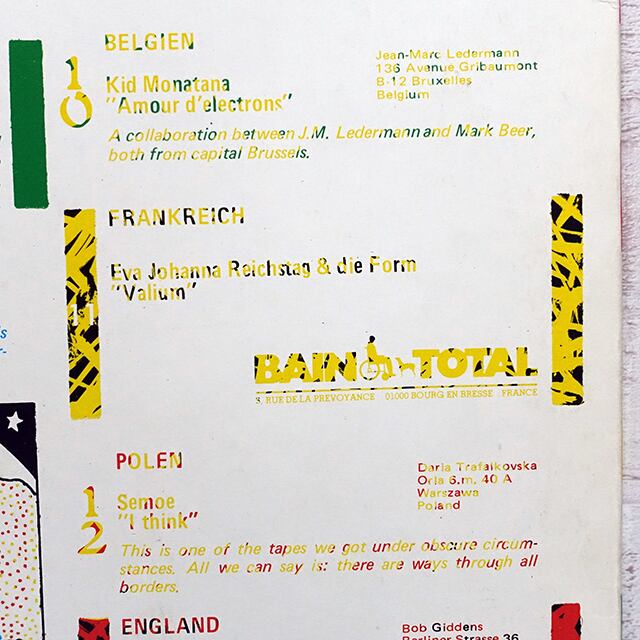 BELGIEN
10
Kid Monatana
"Amour d'electrons"
Jean-Marc Ledermann
136 Avenue Gribaumont
B-12 Bruxelles
Belgium
A collaboration between J.M. Ledermann and Mark Beer,
both from capital Brussels.
FRANKREICH
11
Eva Johanna Reichstag & die Form
"Valium"
BAIN TOTAL
RUE DE LA PREVOYANCE 01000 BOURG EN BRESSE FRANCE
POLEN
12
Semoe
"I think"
Daria Trafalkovska
Orla 6.m. 40 A
Warszawa
Poland
This is one of the tapes we got under obscure circum-
stances. All we can say is: there are ways through all
borders.
ENGLAND
Bob Giddens
Berliner Strasse 36